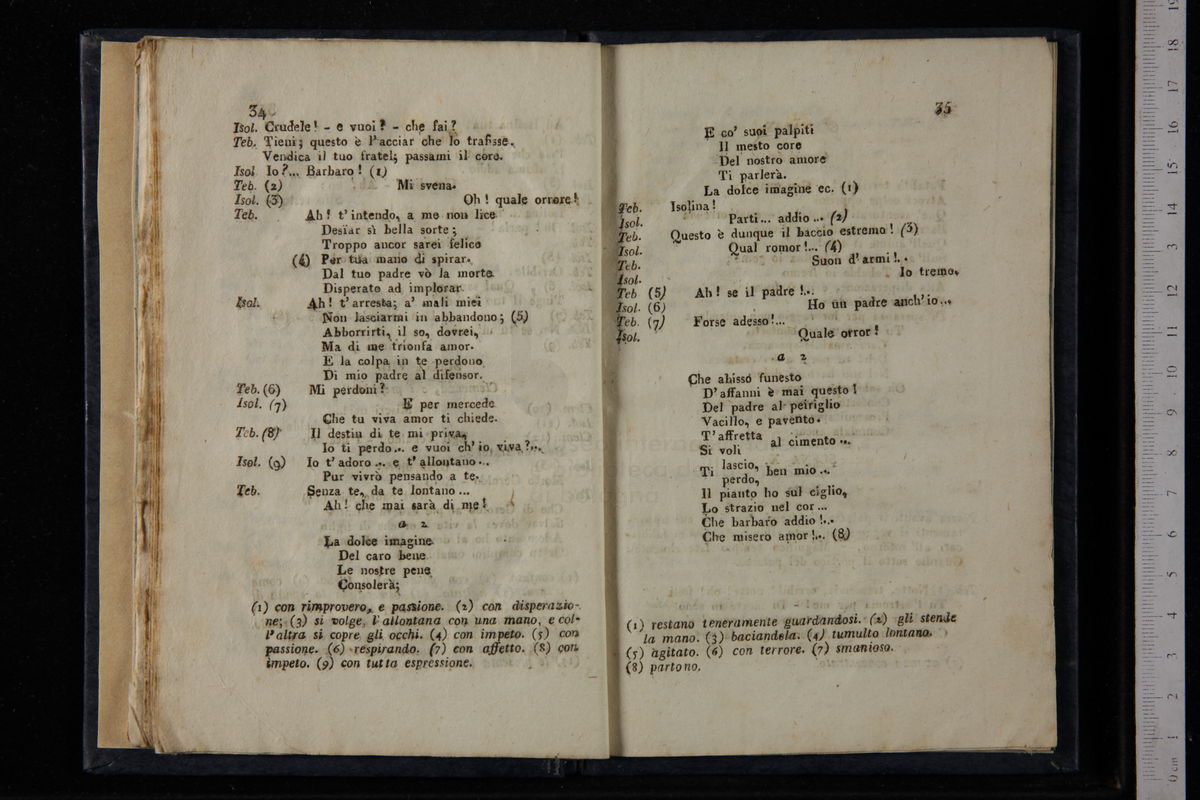 34
Isol. Crudele! - e vuoi? - che fai?
Teb. Tieni; questo è l'acciar che lo trafisse.
Vendica il tuo fratel; passami il core.
Isol Io?... Barbaro! (1)
Teb. (2) Mi svena.
Isol. (3) Oh! quale orrore!
Teb. Ah! t'intendo, a me non lice
Desïar sì bella sorte;
Troppo ancor sarei felice
(4) Per tua mano di spirar.
Dal tuo padre vò la morte
Disperato ad implorar.
Isol. Ah! t'arresta; a' mali miei
Non lasciarmi in abbandono; (5)
Abborrirti, il so, dovrei,
Ma di me trionfa amor.
E la colpa in te perdono
Di mio padre al difensor.
Teb. (6) Mi perdoni?
Isol. (7) E per mercede
Che tu viva amor ti chiede.
Teb. (8) Il destin di te mi priva,
Io ti perdo... e vuoi ch'io viva?...
Isol. (9) Io t'adoro... e t'allontano...
Pur vivrò pensando a te.
Teb. Senza te, da te lontano...
Ah! che mai sarà di me!
a 2
La dolce imagine
Del caro bene
Le nostre pene
Consolerà;
(1) con rimprovero, e passione. (2) con disperazio-
ne; (3) si volge, l'allontana con una mano, e col-
l'altra si copre gli occhi. (4) con impeto. (5) con
passione. (6) respirando. (7) con affetto. (8) con
impeto. (9) con tutta espressione.
35
E co' suoi palpiti
Il mesto core
Del nostro amore
Ti parlerà.
La dolce imagine ec. (1)
Teb. Isolina!
Isol. Parti... addio... (2)
Teb. Questo è dunque il baccio estremo! (3)
Isol. Qual romor!... (4)
Teb. Suon d'armi!..
Isol. Io tremo.
Teb (5) Ah! se il padre!..
Isol. (6) Ho un padre anch'io...
Teb. (7) Forse adesso!...
Isol. Quale orror!
a 2
Che abisso funesto
D'affanni è mai questo!
Del padre al periglio
Vacillo, e pavento.
T'affretta al cimento...
Si voli
Ti lascio, ben mio...
perdo,
Il pianto ho sul ciglio,
Lo strazio nel cor...
Che barbaro addio!...
Che misero amor!.. (8)
(1) restano teneramente guardandosi. (2) gli stende
la mano. (3) baciandola. (4) tumulto lontano.
(5) agitato. (6) con terrore. (7) smanioso.
(8) partono.